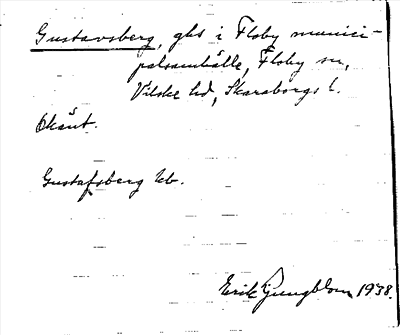 Gustavsberg, ghs i Floby munici-
palsamhälle, Floby sn,
Vilske hd, Skaraborgs l.
Okänt.
Gustafsberg kb.
Erik Ljungblom 1938.